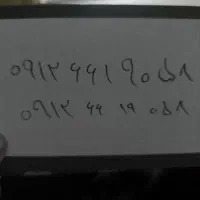 ۰۹۱۲ ۶۶۱ ۹۰ ۵۸
۰۹۱۲ ۶۶ ۱۹ ۰۵۸